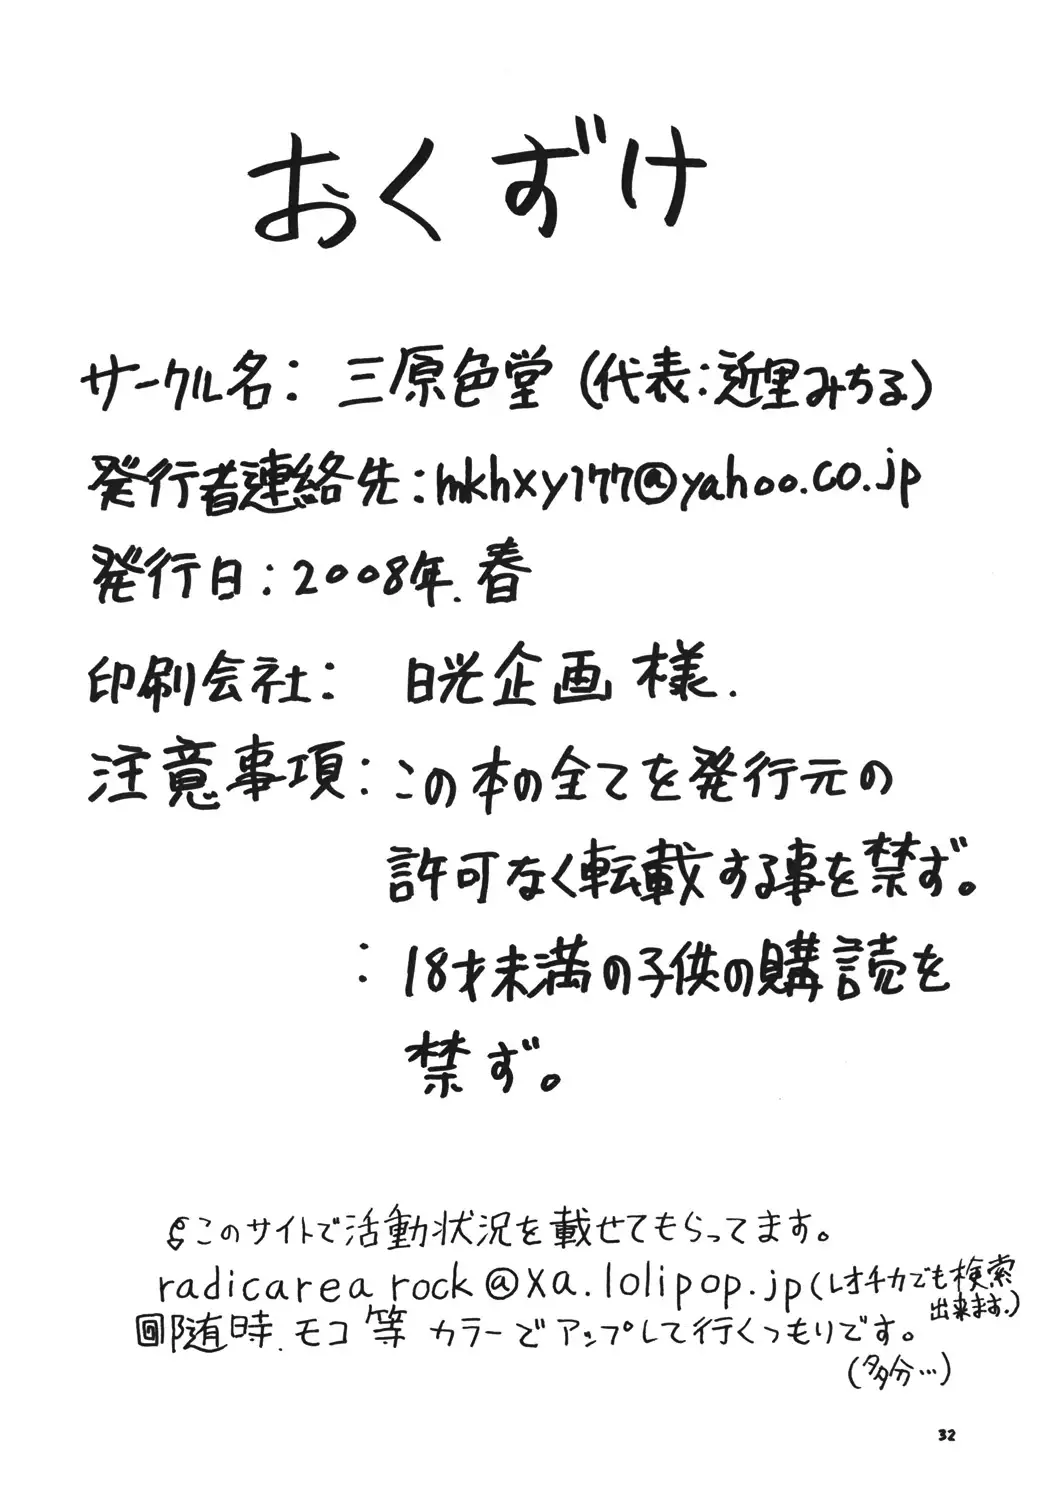 おくずけ
サークル名：三原色堂（代表：近里みちる）
発行者連絡先：mkhxy177@yahoo.co.jp
発行日：2008年.春
印刷会社：日光企画様.
注意事項：この本の全てを発行元の
許可なく転載する事を禁ず。
：18才未満の子供の購読を
禁ず。
このサイトで活動状況を載せてもらってます。
radicarea rock@xa.lolipop.jp(レオチカでも検索
出来ます。)
随時.モコ等カラーでアップして行くつもりです。
(多分…)
32